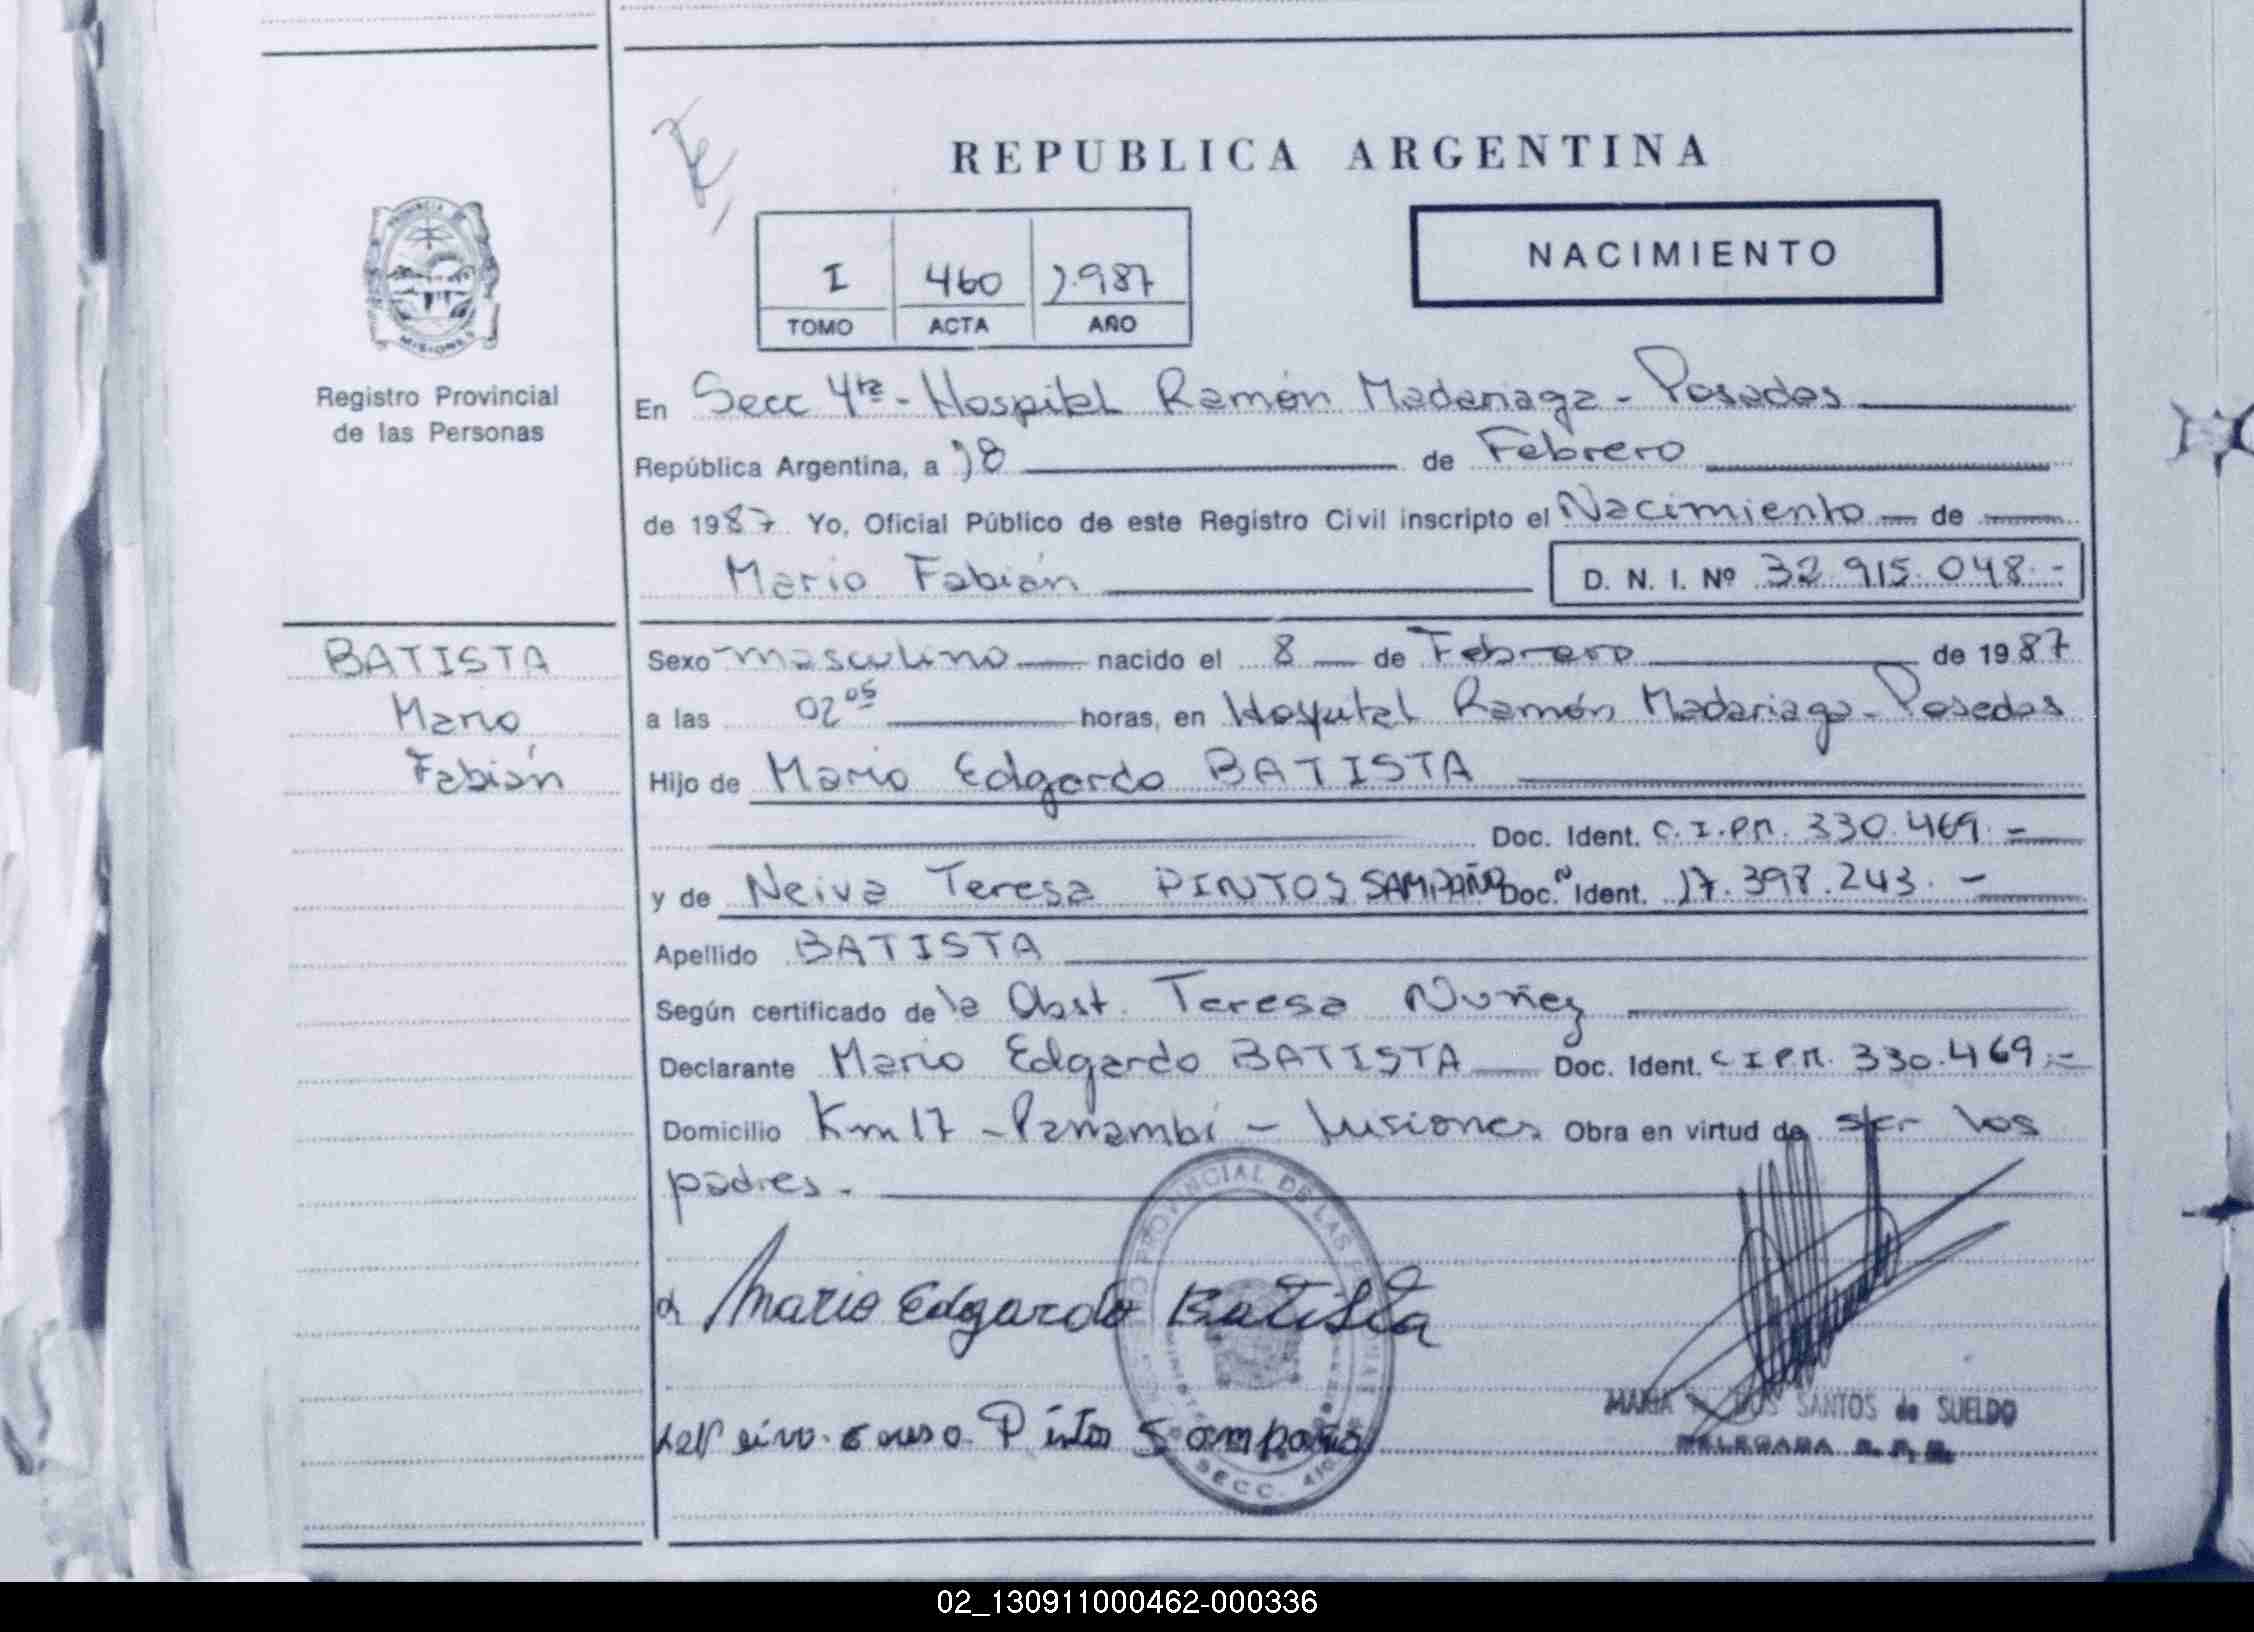 REPUBLICA ARGENTINA
NACIMIENTO
I 460 1.987
TOMO ACTA AÑO
PROVINCIA DE
MISIONES
Registro Provincial
de las Personas
En Secc 4ta - Hospital Ramón Madariaga - Posadas
República Argentina, a 18 de Febrero
de 1987 Yo, Oficial Público de este Registro Civil inscripto el Nacimiento de
Mario Fabián D. N. I. Nº 32.915.048.-
BATISTA
Mario
Fabián
Sexo masculino nacido el 8 de Febrero de 1987
a las 02 05 horas, en Hospital Ramón Madariaga - Posadas
Hijo de Mario Edgardo BATISTA
Doc. Ident. C.I.P.M. 330.469.-
y de Neiva Teresa PINTOS SAMPAÑO Doc. Ident. 17.397.243.-
Apellido BATISTA
Según certificado de la Obst. Teresa Nuñez
Declarante Mario Edgardo BATISTA Doc. Ident. C I P.M. 330.469.-
Domicilio Km 17 - Panambí - Misiones Obra en virtud de ser los
padres.-
Mario Edgardo Batista
PROVINCIAL DE LAS
SECC.
MARIA DOS SANTOS de SUELDO
DELEGADA
02_130911000462-000336